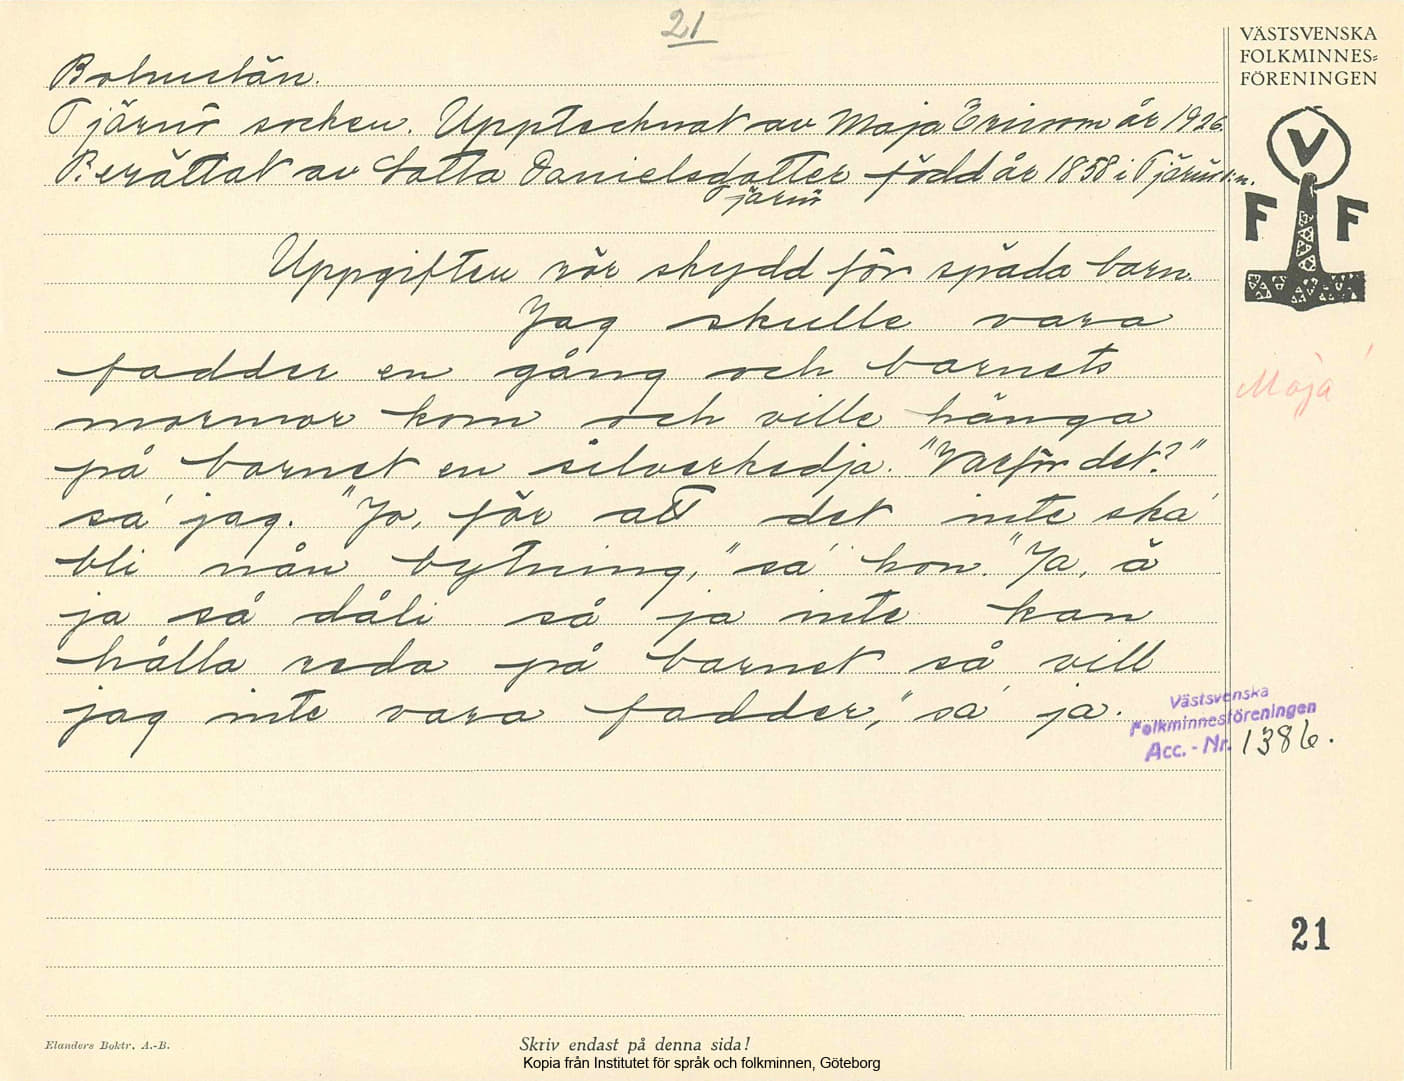 21
VÄSTSVENSKA
FOLKMINNES-
FÖRENINGEN
V
F F
Bohuslän.
Tjärnö socken. Upptecknat av Maja Ericson år 1926.
Berättat av Lotta Danielsdotter född år 1858 i Tjärnö sn.
Tjärnö
Uppgiften rör skydd för späda barn.
Jag skulle vara
fadder en gång och barnets
mormor kom och ville hänga
på barnet en silverkedja. "Varför det?"
sa' jag. "Jo, för att det inte ska'
bli nån bytning," sa' hon. "Ja, ä
ja så dåli så ja inte kan
hålla reda på barnet så vill
jag inte vara fadder," sa' ja.
Maja
Västsvenska
Folkminnesföreningen
Acc. - Nr. 1386.
21
Elanders Boktr. A.-B.
Skriv endast på denna sida!
Kopia från Institutet för språk och folkminnen, Göteborg